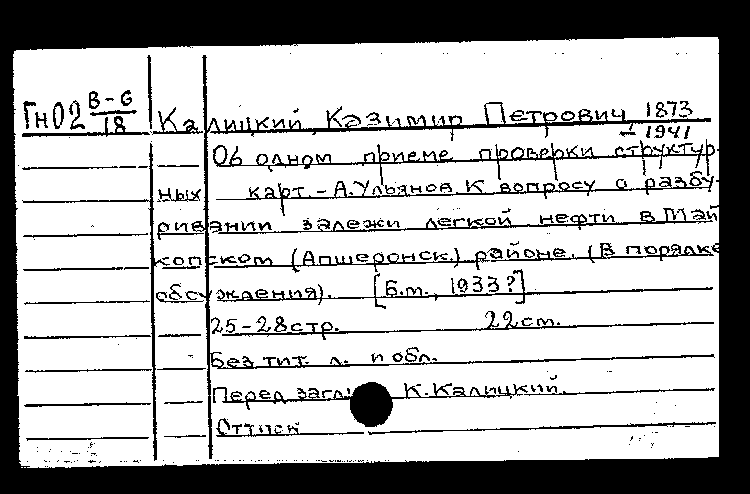 ГнО2 В-6/18 Калицкий, Казимир Петрович 1873
† 1941
Об одном приеме проверки структур-
ных карт. - А.Ульянов К вопросу о разбу-
ривании залежи легкой нефти в Май
копском (Апшеронск.) районе. (В порядке
обсуждения). [Б.м., 1933?]
25-28стр. 22см.
Без тит. л. и обл.
Перед загл. К. Калицкий.
Оттиск